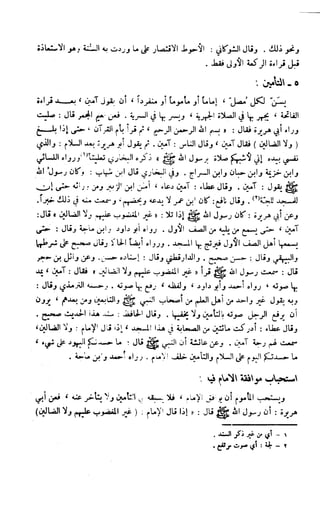 ونحو ذلك . وقال الشوكاني : الأحوط الاقتصار على ما وردت به السنة وهو الاستعاذة
قبل قراءة الركعة الأولى فقط .
٥ ـ التأمين :
يسن لكل مصل ، إماما أو مأموما أو منفردا ، أن يقول آمين ، بعد قراءة
الفاتحة ، يجهر بها في الصلاة الجهرية ، ويسر بها في السرية . فعن نعيم المجمر قال : صليت
وراء أبي هريرة فقال : « بسم الله الرحمن الرحيم ، ثم قرأ بأم القرآن ، حتى إذا بلغ
( ولا الضالين ) فقال : آمين ، وقال الناس : آمين . ثم يقول أبو هريرة بعد السلام : والذي
نفسي بيده إني لأشبهكم صلاة برسول الله ﷺ » ذكره البخاري تعليقا(١) ورواه النسائي
وابن خزيمة وابن حبان وابن السراج . وفي البخاري قال ابن شهاب : « وكان رسول الله
ﷺ يقول : آمين . وقال عطاء : آمين دعاء ، أمن ابن الزبير ومن وراءه حتى إن
للمسجد للجة(٢) . وقال نافع : كان ابن عمر لا يدعه ويحضهم ، وسمعت منه في ذلك خيرا .
وعن أبي هريرة : كان رسول الله ﷺ إذا تلا : « غير المغضوب عليهم ولا الضالين » قال :
آمين ، حتى يسمع من يليه من الصف الأول . رواه أبو داود وابن ماجة وقال : حتى
يسمعها أهل الصف الأول فيرتج بها المسجد . ورواه أيضا الحاكم وقال صحيح على شرطهما
والبيهقي وقال : حسن صحيح . والدارقطني وقال : إسناده حسن . وعن وائل بن حجر
قال : سمعت رسول الله ﷺ قرأ « غير المغضوب عليهم ولا الضالين » فقال : آمين ، يمد
بها صوته ، رواه أحمد وأبو داود ، ولفظه ، رفع بها صوته . وحسنه الترمذي وقال :
وبه يقول غير واحد من أهل العلم من أصحاب النبي ﷺ والتابعين ومن بعدهم ، يرون
أن يرفع الرجل صوته بالتأمين ولا يخفيها . وقال الحافظ : سند هذا الحديث صحيح .
وقال عطاء : أدركت مائتين من الصحابة في هذا المسجد ، إذا قال الإمام : ولا الضالين ،
سمعت لهم رجة آمين . وعن عائشة أن النبي ﷺ قال : ما حسدتكم اليهود على شيء ،
ما حسدتكم اليهود على السلام والتأمين خلف الإمام . رواه أحمد وابن ماجة .
استحباب موافقة الإمام فيه :
ويستحب للمأموم أن يوافق الإمام ، فلا يسبقه في التأمين ولا يتأخر عنه ، فعن أبي
هريرة : أن رسول الله ﷺ قال : « إذا قال الإمام : ( غير المغضوب عليهم ولا الضالين )
١ – أي من غير ذكر السند .
٢ – لجة : أي صوت مرتفع .